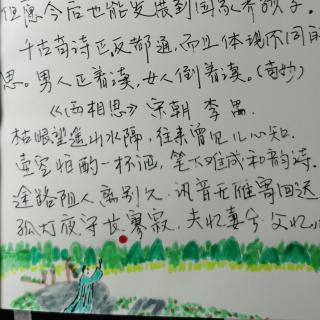 但愿今后也能发展到国家养孩子.
千古奇诗正反都通,而且体现不同的
思。男人正着读,女人倒着读。(奇妙)
《两相思》宋朝 李禺.
枯眼望遥山水隔,往来曾见几心知.
壶空怕酌一杯酒,笔下难成和韵诗.
途路阻人离别久.讯音无雁寄回迟
孤灯夜守长寥寂.夫忆妻兮.父忆